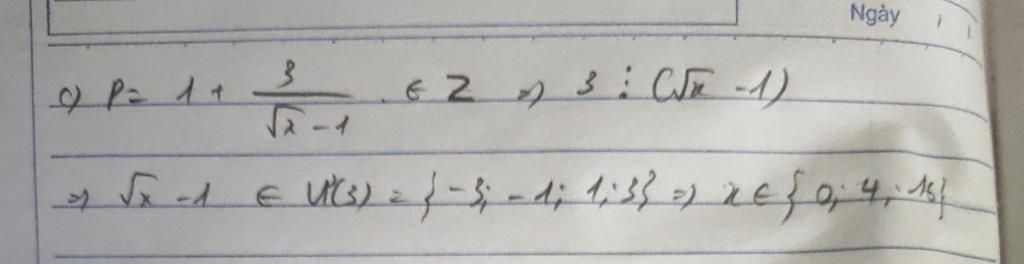 Ngày
c) P = 1 + 3/(√x - 1) ∈ Z ⇒ 3 ⋮ (√x - 1)
⇒ √x - 1 ∈ Ư(3) = {-3; -1; 1; 3} ⇒ x ∈ {0; 4; 16}